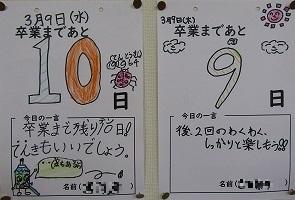 3月9日(水)
卒業まであと
10
日
今日の一言
卒業まで残り10日!
てんきもいいでしょう。
名前(
3月9日(木)
卒業まであと
9
日
今日の一言
後、2回のわくわく、
しっかりと楽しもう!!
名前(